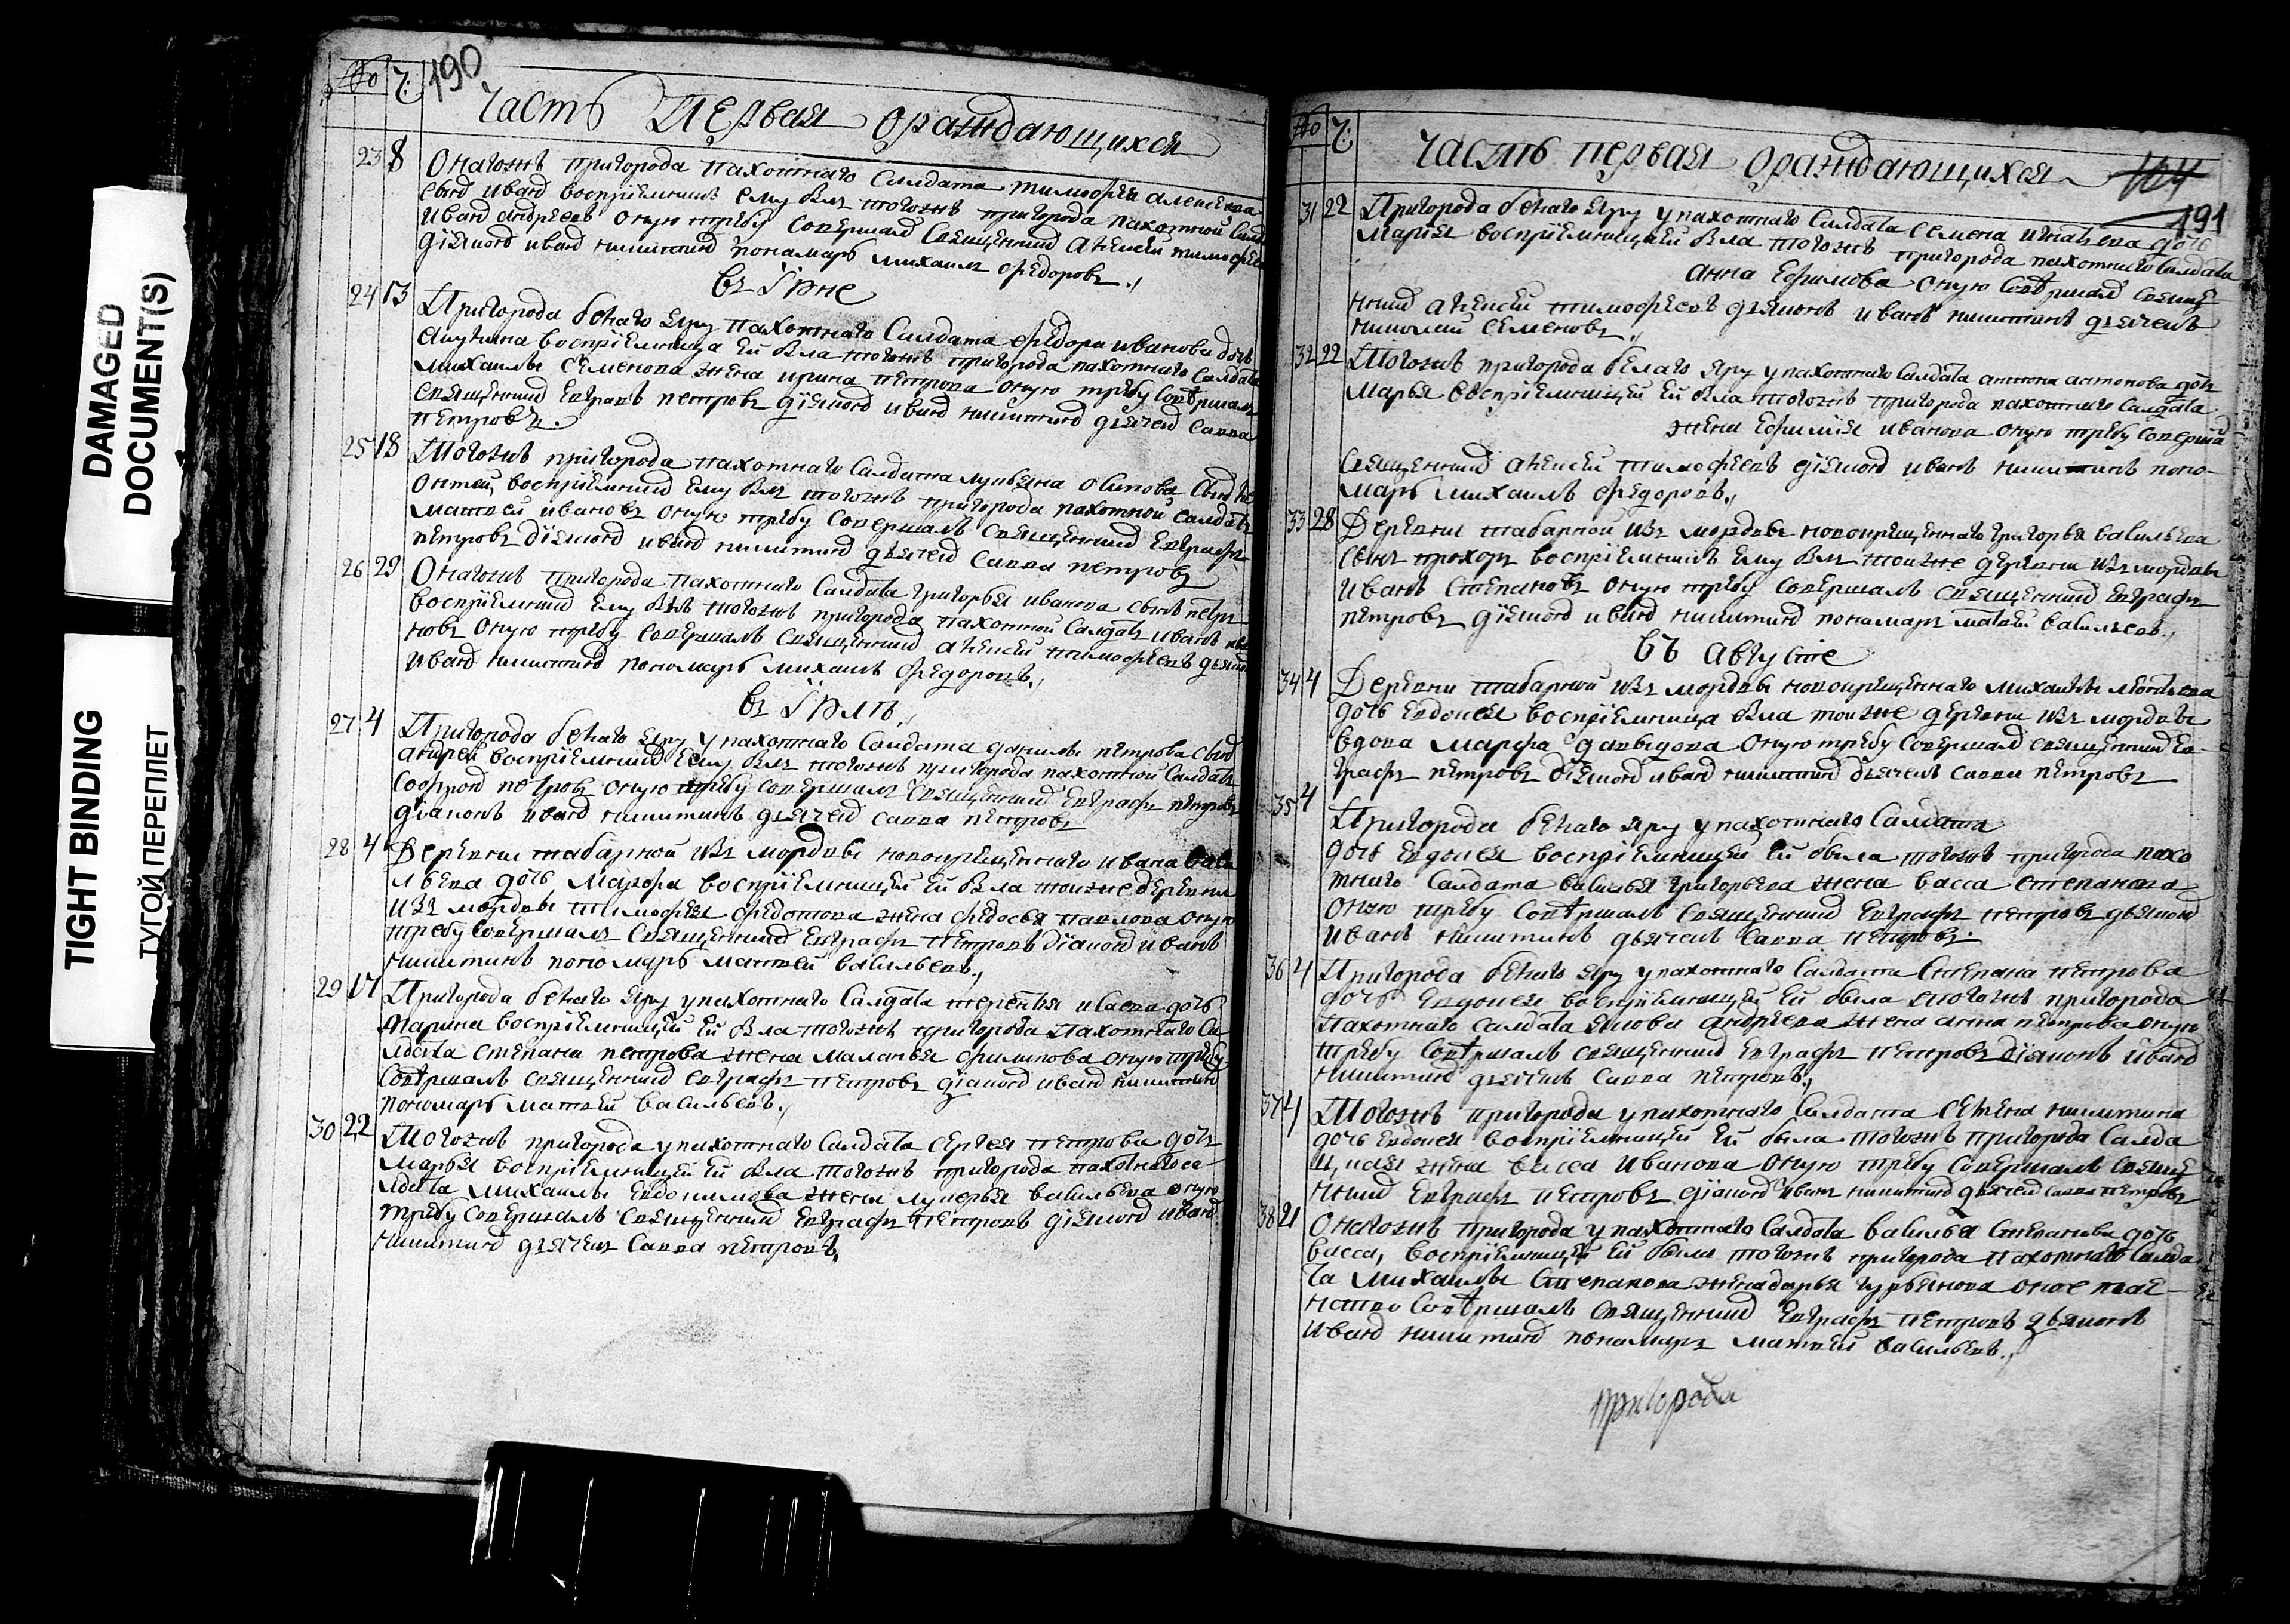 DAMAGED
DOCUMENT(S)
TIGHT BINDING
ТУГОЙ ПЕРЕПЛЕТ
№ Ч: 190
Часть Первая ораждающихся
23 8 Онагожъ пригорода пахотнаго салдата тимофея алексеева
сынъ иванъ воспрiемникъ ему былъ тогожъ пригорода пахотной салд
иванъ андреевъ оную требу совершалъ священникъ алексей тимофее
дiяконъ иванъ никитинъ пономарь михаилъ федоровъ
въ Iюне
24 13 Пригорода белаго яру пахотнаго салдата федора иванова дочь
акулина воспрiемница ей была тогожъ пригорода пахотнаго салдата
михаилы семенова жена ирина петрова оную требу совершалъ
священникъ евграфъ петровъ дiяконъ иванъ никитинъ дьячекъ савва
петровъ.
25 18 Тогожъ пригорода пахотнаго салдата лукьяна осипова сынъ
воспрiемникъ ему былъ тогожъ пригорода пахотной салдатъ
матвей ивановъ оную требу совершалъ священникъ евграфъ
петровъ дiяконъ иванъ никитинъ дьячекъ савва петровъ
26 29 Онагожъ пригорода пахотнаго салдата григорья иванова сынъ петръ
воспрiемникъ ему былъ тогожъ пригорода пахотной салдатъ иванъ
новъ оную требу совершалъ священникъ алексей тимофеевъ дьяконъ
иванъ никитинъ пономарь михаилъ федоровъ
въ Iюлѣ
27 4 Пригорода белаго яру у пахотнаго салдата данилы петрова сынъ
андрей воспрiемникъ ему былъ тогожъ пригорода пахотной салдатъ
софронъ петровъ оную требу совершалъ священникъ евграфъ петровъ
дiаконъ иванъ никитинъ дьячекъ савва петровъ
28 4 Деревни табарной изъ мордвы новокрещеннаго ивана васи
льева дочь марфа воспрiемницей ей была тоижe деревни
изъ мордвы тимофея федотова жена федосья павлова оную
требу совершалъ священникъ евграфъ петровъ дiаконъ иванъ
никитинъ пономарь матвей васильевъ
29 17 Пригорода белаго яру у пахотнаго салдата терентья исаева дочь
марина воспрiемницей ей была тогожъ пригорода пахотнаго са
лдата степана петрова жена маланья филипова оную требу
совѣршалъ священникъ евграфъ петровъ дiаконъ иванъ никитинъ
пономарь матвей васильевъ
30 22 Тогожъ пригорода у пахотнаго салдата сергея петрова дочь
марья воспрiемницей ей была тогожъ пригорода пахотнаго са-
лдата михаилы евдокимова жена лукерья васильева оную
требу совершалъ священникъ евграфъ петровъ дiяконъ иванъ
никитинъ дьячекъ савва петровъ
№ Ч:
Часть первая ораждающихся 164
191
31 22 Пригорода белаго яру у пахотнаго салдата семена игнатьева дочь
марья воспрiемницей была тогожъ пригорода пахотнаго салдата
анна ефимова оную совѣршалъ священ
никъ алексей тимофеевъ дьяконъ иванъ никитинъ дьячекъ
николай семеновъ
32 22 Тогожъ пригорода белаго яру у пахотнаго салдата антона антонова дочь
марья воспрiемницей ей была тогожъ пригорода пахотнаго салдата
жена ефимия иванова оную требу соверша
священникъ алексей тимофеевъ дiяконъ иванъ никитинъ поно-
марь михаилъ федоровъ
33 28 Деревни табарной изъ мордвы новокрещеннаго григорья васильева
сынъ прохоръ воспрiемникъ ему былъ тоиже деревни изъ мордвы
иванъ степановъ оную требу совершалъ священникъ евграфъ
петровъ дiяконъ иванъ никитинъ пономарь матвей васильевъ
въ августе
34 4 Деревни табарной изъ мордвы новокрещеннаго михаилы
дочь евдокея воспрiемница была тоиже деревни изъ мордвы
вдова марфа давыдова оную требу совершалъ священникъ ев-
графъ петровъ дiяконъ иванъ никитинъ дьячекъ савва петровъ
35 4 Пригорода белаго яру у пахотнаго салдата
дочь евдокея воспрiемницей ей была тогожъ пригорода пахо
тнаго салдата василья григорьева жена васса степанова
оную требу совѣршалъ священникъ евграфъ петровъ дьяконъ
иванъ никитинъ дьячекъ савва петровъ.
36 4 Пригорода белаго яру у пахотнаго салдата степана петрова
дочь евдокея воспрiемницей ей была тогожъ пригорода
пахотнаго салдата якова андреева жена анна петрова оную
требу совѣршалъ священникъ евграфъ петровъ дiяконъ иванъ
никитинъ дьячекъ савва петровъ
37 4 Тогожъ пригорода у пахотнаго салдата семена никитина
дочь евдокея воспрiемницей ей была тогожъ пригорода салда
цкая жена васса иванова оную требу совершалъ свяще
нникъ евграфъ петровъ дiаконъ иванъ никитинъ дьячекъ савва петровъ
38 21 Онагожъ пригорода у пахотнаго салдата василья степанова дочь
васса, воспрiемницей ей была тогожъ пригорода пахотнаго салда
та михаилы степанова жена дарья гурьянова оное таи-
нство совѣршалъ священникъ евграфъ петровъ дьяконъ
иванъ никитинъ пономарь матвей васильевъ
пригорода